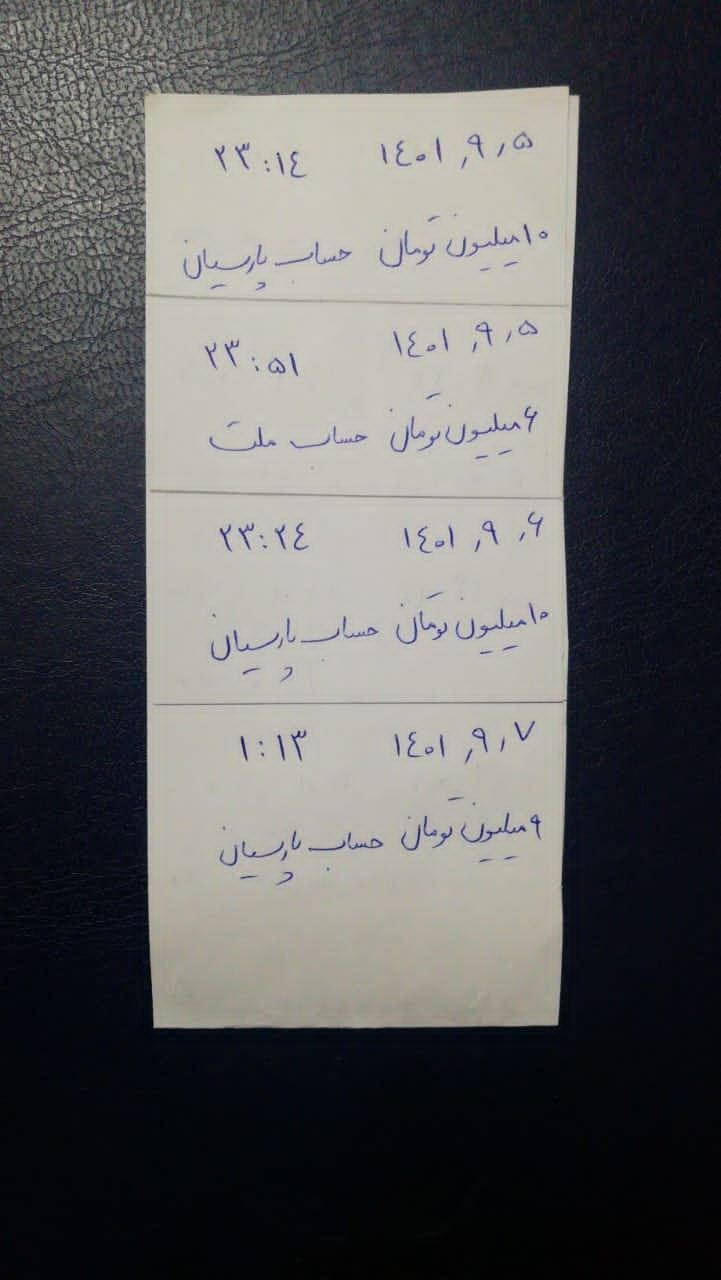 ۱۴۰۱,۹,۵ ۲۳:۱۴
۱۰ میلیون تومان حساب پارسیان
۱۴۰۱,۹,۵ ۲۳:۵۱
۶ میلیون تومان حساب ملت
۱۴۰۱,۹,۶ ۲۳:۲۴
۱۰ میلیون تومان حساب پارسیان
۱۴۰۱,۹,۷ ۱:۱۳
۹ میلیون تومان حساب پارسیان